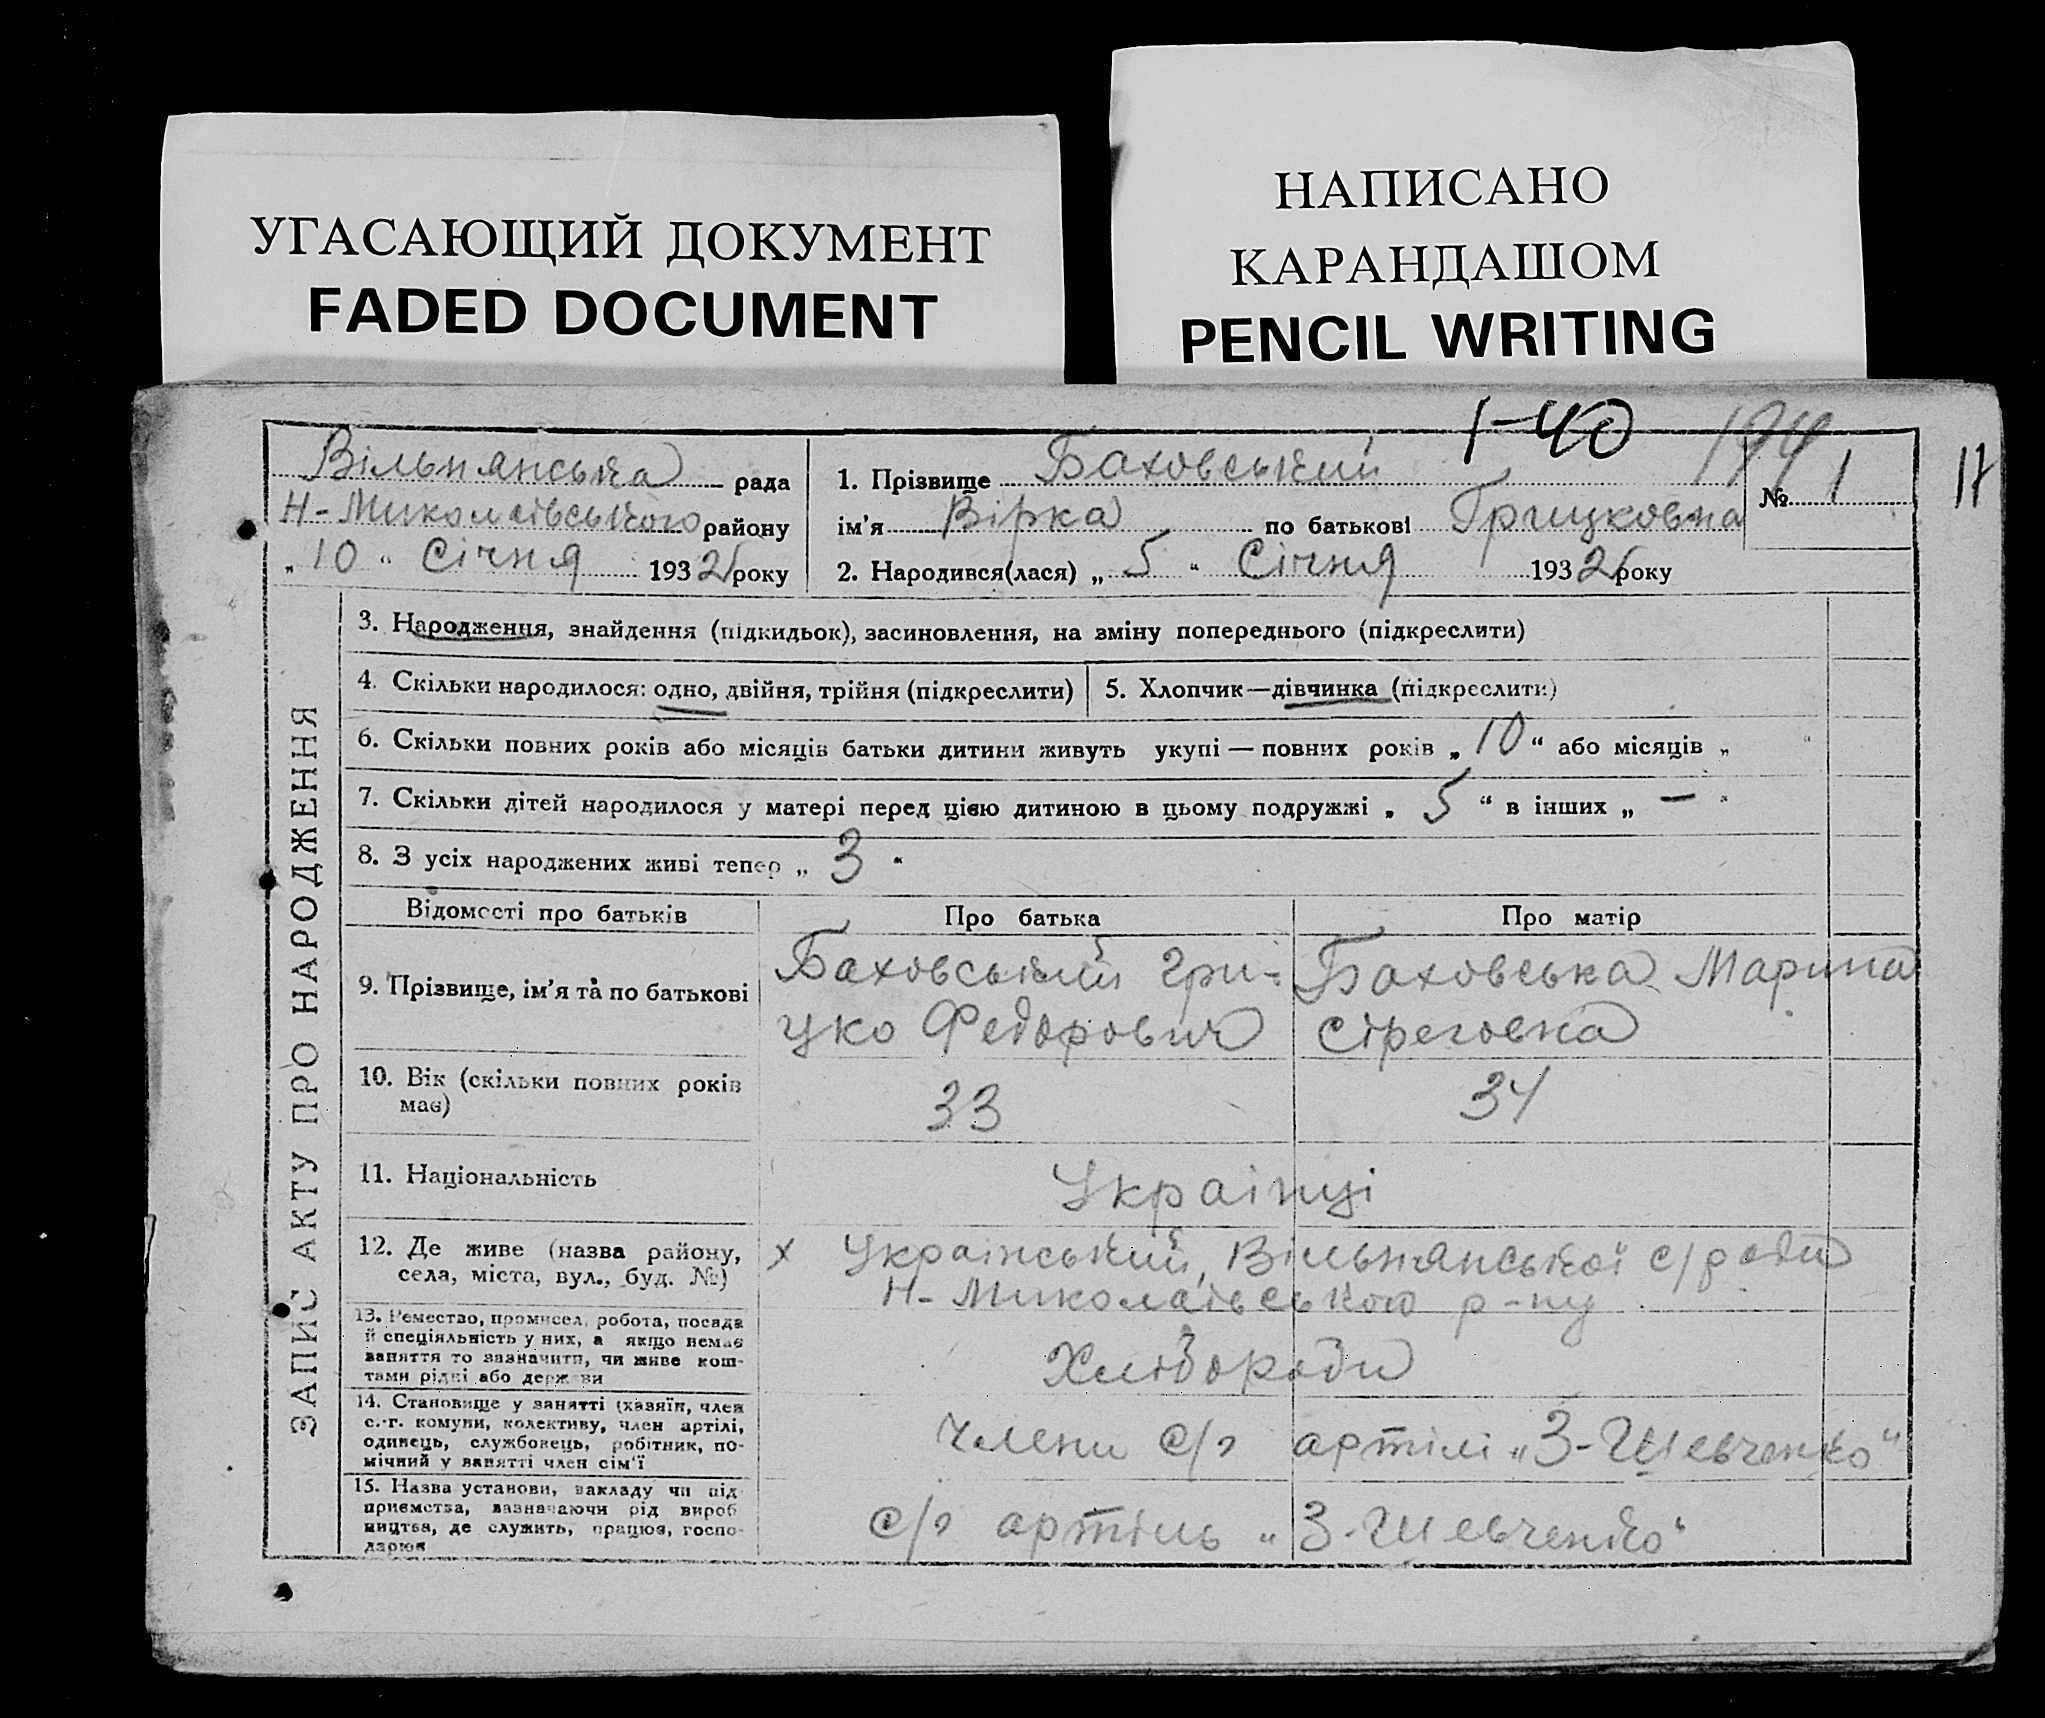 УГАСАЮЩИЙ ДОКУМЕНТ
FADED DOCUMENT
НАПИСАНО
КАРАНДАШОМ
PENCIL WRITING
1-40
17
Вільнянська рада
Н-Миколаївського району
„ 10 “ Січня 1932 року
1. Прізвище Баховський
№ 1
ім’я Вірка по батькові Грицковна
2. Народився(лася) „ 5 “ Січня 1932 року
ЗАПИС АКТУ ПРО НАРОДЖЕННЯ
3. Народження, знайдення (підкидьок), засиновлення, на зміну попереднього (підкреслити)
4. Скільки народилося: одно, двійня, трійня (підкреслити)
5. Хлопчик—дівчинка (підкреслити)
6. Скільки повних років або місяців батьки дитини живуть укупі — повних років „ 10 “ або місяців „ “
7. Скільки дітей народилося у матері перед цією дитиною в цьому подружжі „ 5 “ в інших „ — “
8. З усіх народжених живі тепер „ 3 “
Відомості про батьків
Про батька
Про матір
9. Прізвище, ім’я та по батькові
Баховський Гри-
цко Федорович
Баховська Марина
10. Вік (скільки повних років
має)
33
34
11. Національність
Українці
12. Де живе (назва району,
села, міста, вул., буд. №)
х Український, Вільнянської с/ради
Н-Миколаївського р-ну
13. Ремество, промисел, робота, посада
й спеціяльність у них, а якщо немає
заняття то зазначити, чи живе кош-
тами рідні або держави
Хлібороби
14. Становище у занятті (хазяїн, член
с.-г. комуни, колективу, член артілі,
одинець, службовець, робітник, по-
мічний у занятті член сім’ї
Члени с/г артілі „З-Шевченко“
15. Назва установи, закладу чи під
приємства, зазначаючи рід вироб
ництва, де служить, працює, госпо-
дарює
с/г артіль „З-Шевченко“